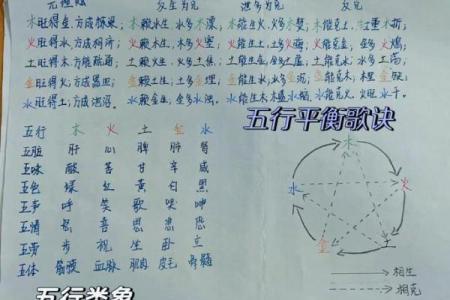 反生为克 泄多为克 反克
木旺得金,方成栋梁; 木赖水生,水多木漂; 木能生火,火多木焚; 木能克土,土重木折;
火旺得水,方成相济; 火赖木生,木多火塞; 火能生土,土多火晦; 火能克金,金多火熄;
土旺得木,方能疏通; 土赖火生,火多土焦; 土能生金,金多土弱; 土能克水,水多土荡;
金旺得火,方成器皿; 金赖土生,土多金埋; 金能生水,水多金沉; 金能克木,木坚金缺;
水旺得土,方成池沼; 水赖金生,金多水浊; 水能生木,木盛水缩; 水能克火,火旺水干。
五行平衡歌诀
五行 木 火 土 金 水
五脏 肝 心 脾 肺 肾
五味 酸 苦 甘 辛 咸
五色 绿 红 黄 白 黑
五声 呼 笑 歌 哭 呻
五情 怒 喜 思 悲 恐
五劳 步 视 坐 卧 立
五体 筋腱 血脉 肌肉 皮毛 骨髓
五行类象
木
水 火
金 土
相生
相克